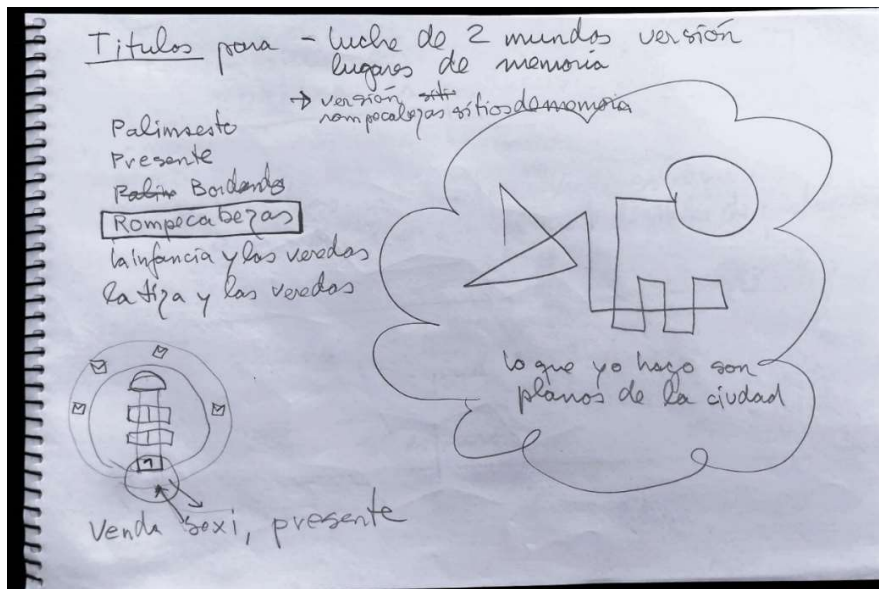 Titulos para - luche de 2 mundos versión
lugares de memoria
→ versión sitio
rompecabezas sitios de memoria
Palimsesto
Presente
Palim Bordando
Rompecabezas
la infancia y las veredas
la tiza y las veredas
lo que yo hago son
planos de la ciudad
Venda sexi, presente